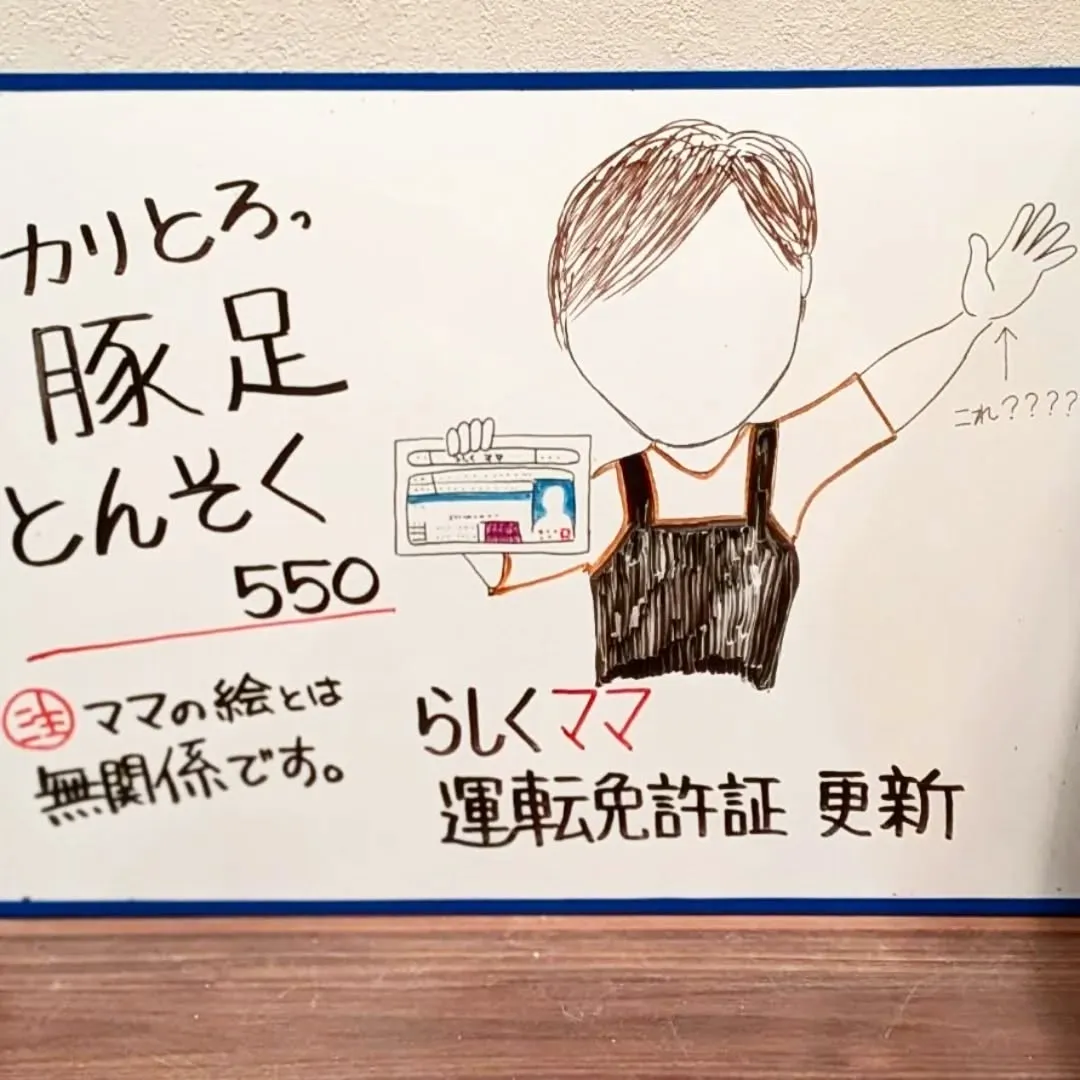 カリとろっ
豚足
とんそく
550
注 ママの絵とは
無関係です。
らしくママ
これ????
らしくママ
運転免許証 更新